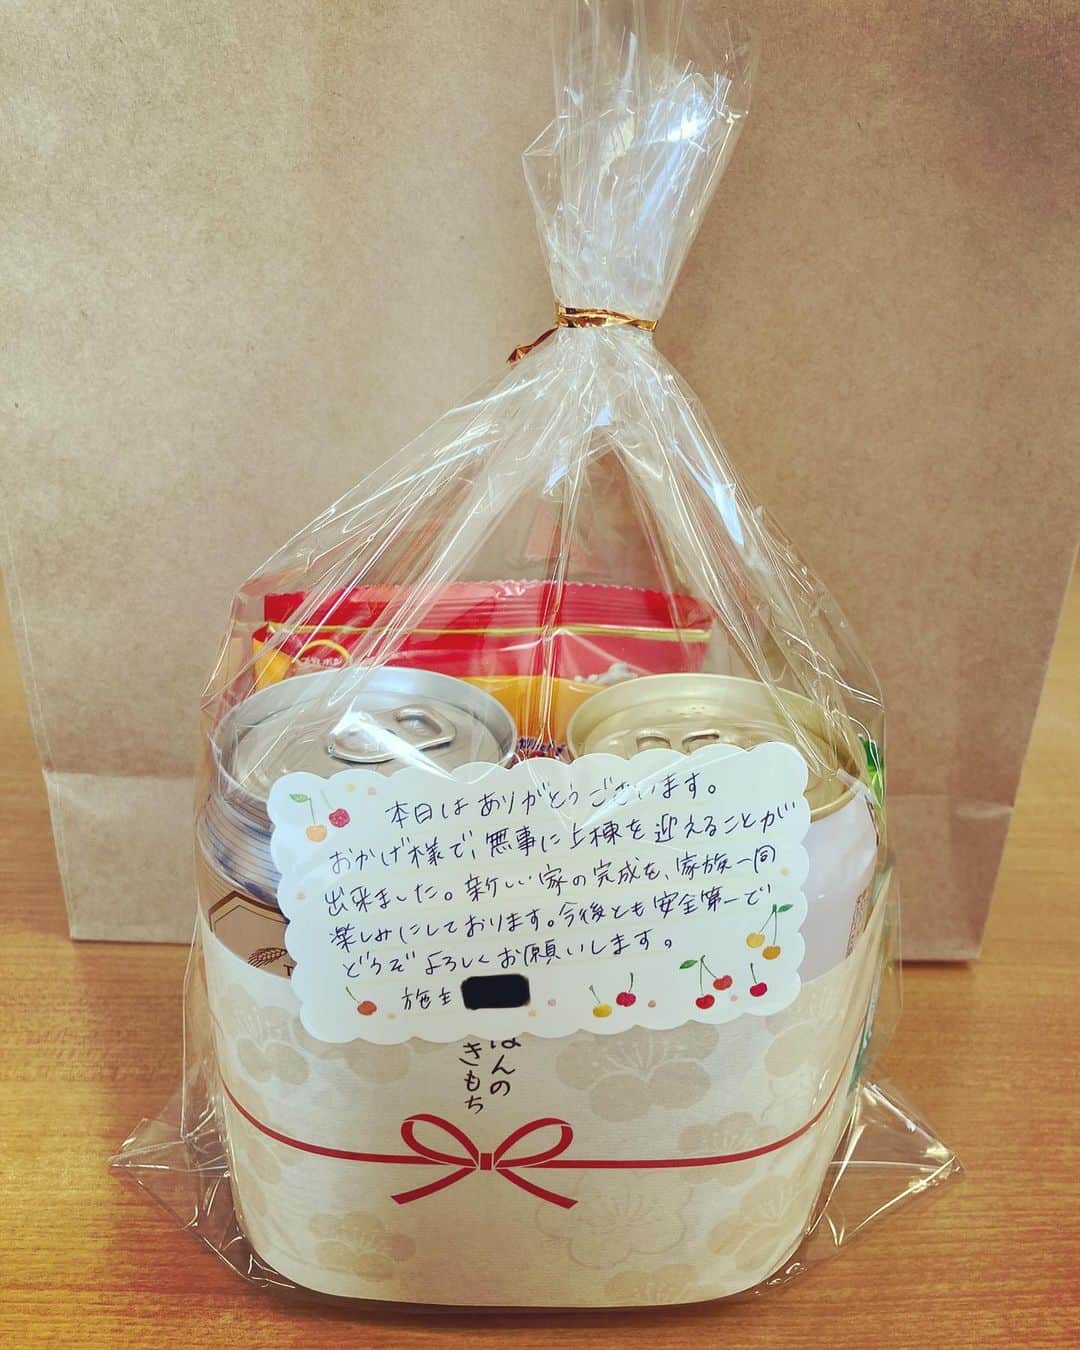 本日はありがとうございます。
おかげ様で、無事に上棟を迎えることが
出来ました。新しい家の完成を、家族一同
楽しみにしております。今後とも安全第一で
どうぞよろしくお願いします。
施主
ほんの
きもち